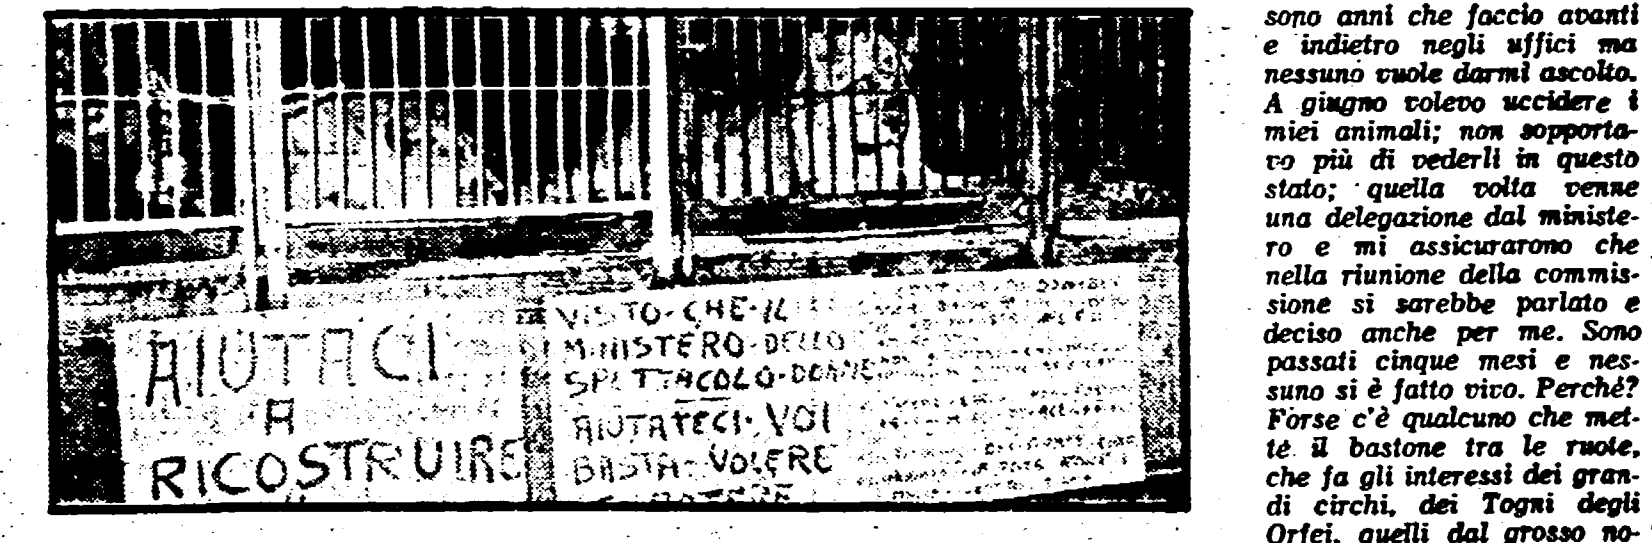 AIUTACI
A
RICOSTRUIRE
VISTO-CHE-IL
MINISTERO-DELLO
SPETTACOLO-DORME
AIUTATECI-VOI
BASTA-VOLERE
sono anni che faccio avanti
e indietro negli uffici ma
nessuno vuole darmi ascolto.
A giugno volevo uccidere i
miei animali; non sopporta-
vo più di vederli in questo
stato; quella volta venne
una delegazione dal ministe-
ro e mi assicurarono che
nella riunione della commis-
sione si sarebbe parlato e
deciso anche per me. Sono
passati cinque mesi e nes-
suno si è fatto vivo. Perché?
Forse c'è qualcuno che met-
te il bastone tra le ruote,
che fa gli interessi dei gran-
di circhi, dei Togni degli
Orfei, quelli dal grosso no-